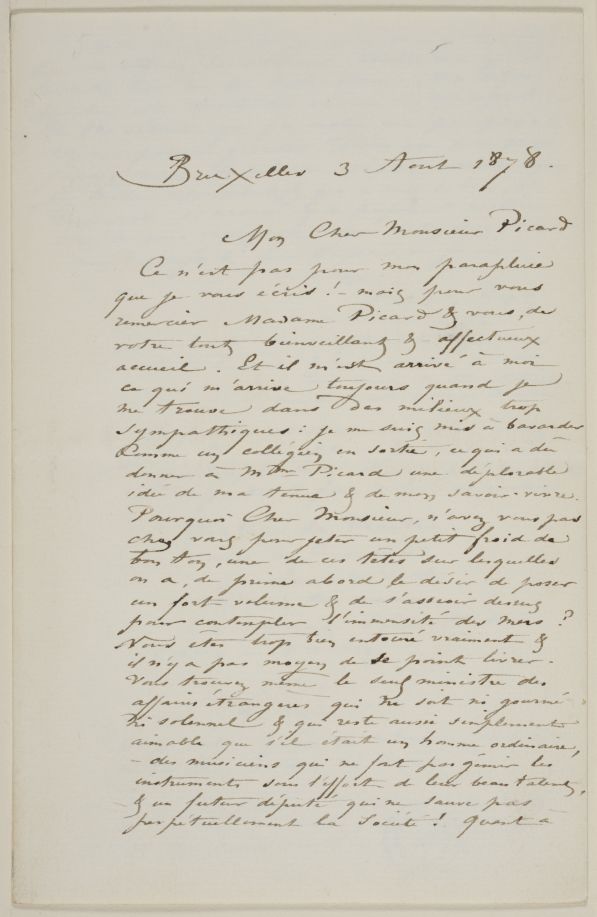 Bruxelles 3 Aout 1878.
Mon Cher Monsieur Picard
Ce n'est pas pour mon parapluie
que je vous écris ! – mais pour vous
remercier Madame Picard & vous, de
votre tout bienveillant & affectueux
accueil. Et il m'est arrivé à moi
ce qui m'arrive toujours quand je
me trouve dans des milieux trop
sympathiques : je me suis mis à bavarder
comme un collégien en sortie, ce qui a dû
donner à Mme Picard une déplorable
idée de ma tenue & de mon savoir-vivre.
Pourquoi Cher Monsieur, n'avez vous pas
chez vous pour jeter un petit froid de
bon ton, une de ces têtes sur lesquelles
on a, de prime abord le désir de poser
un fort volume & de s'asseoir dessus
pour contempler l'immensité des mers ?
Vous êtes trop bien entouré vraiment &
il n'y a pas moyen de se point livrer.
Vous trouvez même le seul ministre des
affaires étrangères qui ne soit ni gourmé
ni solennel & qui reste aussi simplement
aimable que s'il était un homme ordinaire,
– des musiciens qui ne font pas gémir les
instruments sous l'effort de leur beau talent,
& un futur député qui ne sauve pas
perpétuellement la Société ! Quant à